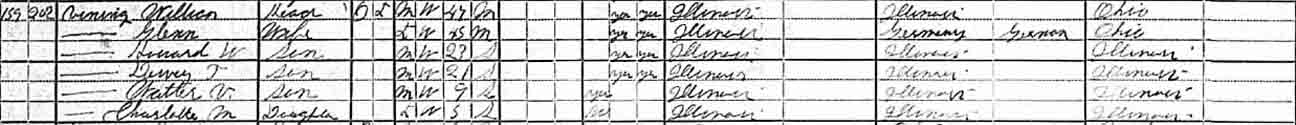 159 202 Vining William Head O M W 47 M yes yes Illinois Illinois Ohio
— Glenn Wife W 45 M yes yes Illinois Germany German Ohio
— Howard W Son M W 23 S yes yes Illinois Illinois Illinois
— Dewey T Son M W 21 S yes yes Illinois Illinois Illinois
— Walter V. Son M W 9 S yes Illinois Illinois Illinois
— Charlotte M Daughter W 5 S Illinois Illinois Illinois